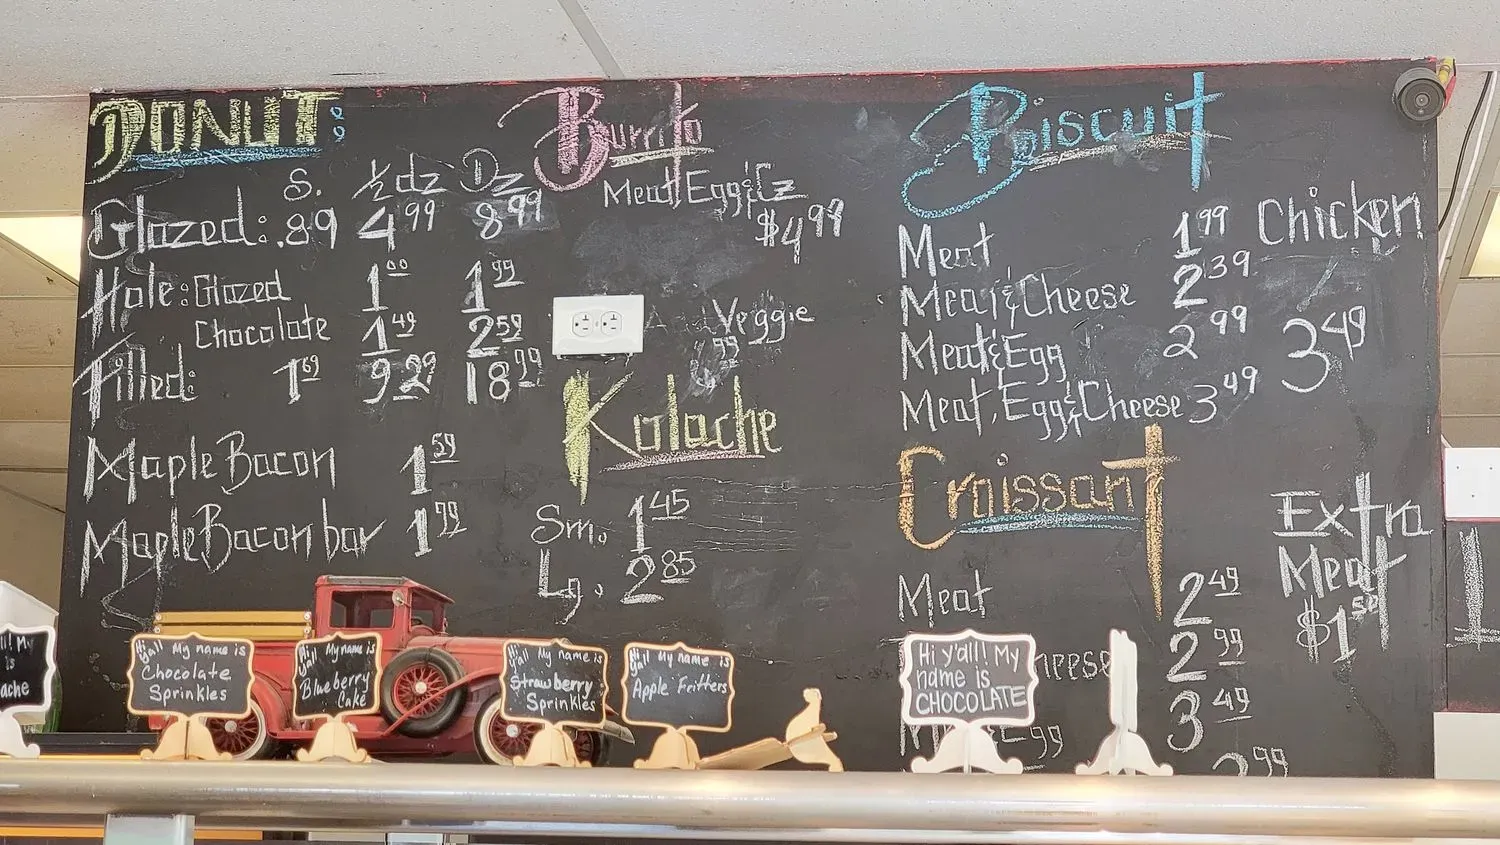 DONUT:
S. 1/2 dz Dz
Glazed: .89 4.99 8.99
Hole: Glazed 1.00 1.99
Chocolate 1.49 2.59
Filled: 1.69 9.29 18.99
Maple Bacon 1.59
Maple Bacon bar 1.99
Burrito
Meat, Egg & Cz
$4.99
Veggie
Kolache
Sm. 1.45
Lg. 2.85
Biscuit
Meat 1.99
Meat & Cheese 2.39
Meat & Egg 2.99
Meat, Egg & Cheese 3.49
Chicken
3.49
Croissant
Meat 2.49
heese 2.99
Egg 3.49
.99
Extra
Meat
$1.50
Hi y'all! My name is
Chocolate
Sprinkles
Hi y'all! My name is
Blueberry
Cake
Hi y'all! My name is
Strawberry
Sprinkles
Hi y'all! My name is
Apple Fritters
Hi y'all! My
name is
CHOCOLATE